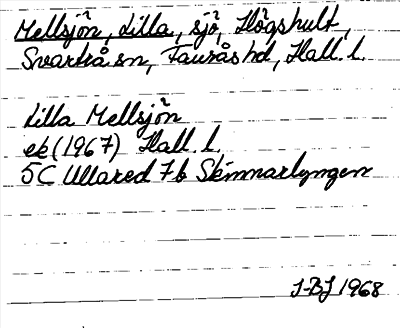 Mellsjön, Lilla, sjö, Högshult,
Svartrå sn, Faurås hd, Hall. l.
Lilla Mellsjön
ek (1967) Hall. l.
5C Ullared 7b Skinnarlyngen
J-BJ 1968